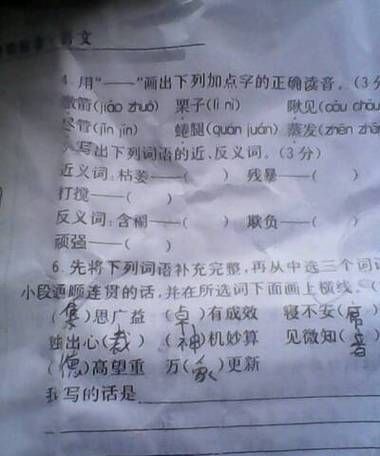 文
4. 用“——”画出下列加点字的正确读音。(3分
(jiáo zhuó) 栗子(lì nì) 瞅见(
尽管(jǐn jìn) 蜷腿(quán juán) 蒸发(zhēn zhēn
写出下列词语的近、反义词。(3分)
近义词:枯萎——( ) 残暴——(
打搅——( )
反义词:含糊——( ) 欺负——(
顽强——( )
6. 先将下列词语补充完整,再从中选三个词
小段通顺连贯的话,并在所选词下面画上横线。(
( )思广益 (卓)有成效 寝不安(席
独出心(裁) (神)机妙算 见微知(
( )高望重 万(象)更新
我写的话是